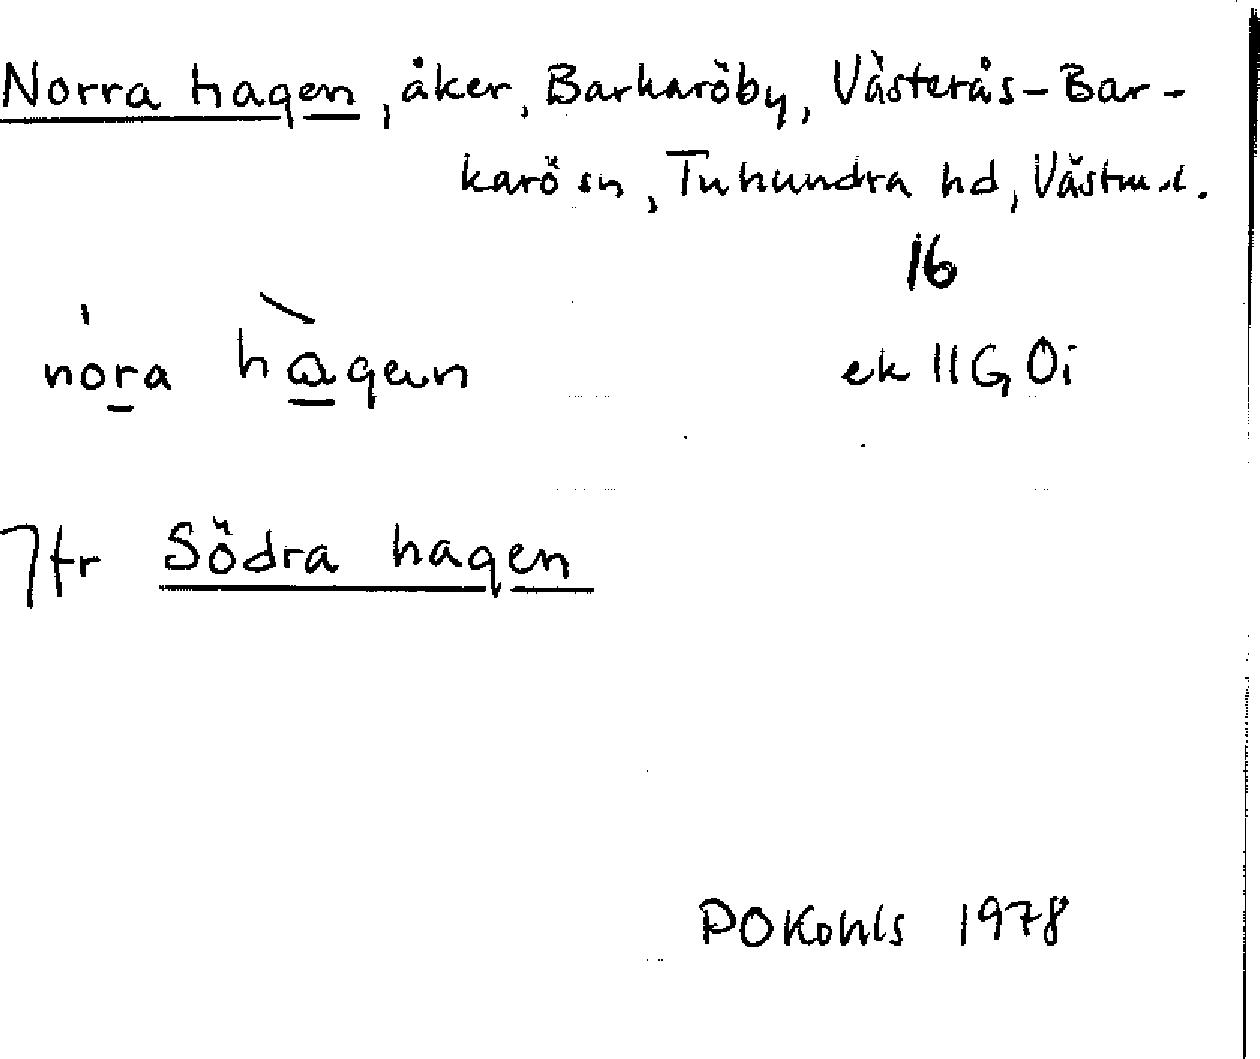 Norra hagen, åker, Barkaröby, Västerås-Bar-
karö sn, Tuhundra hd, Västm.l.
16
nora hagen ek 11G 0i
Jfr Södra hagen
POKohls 1978